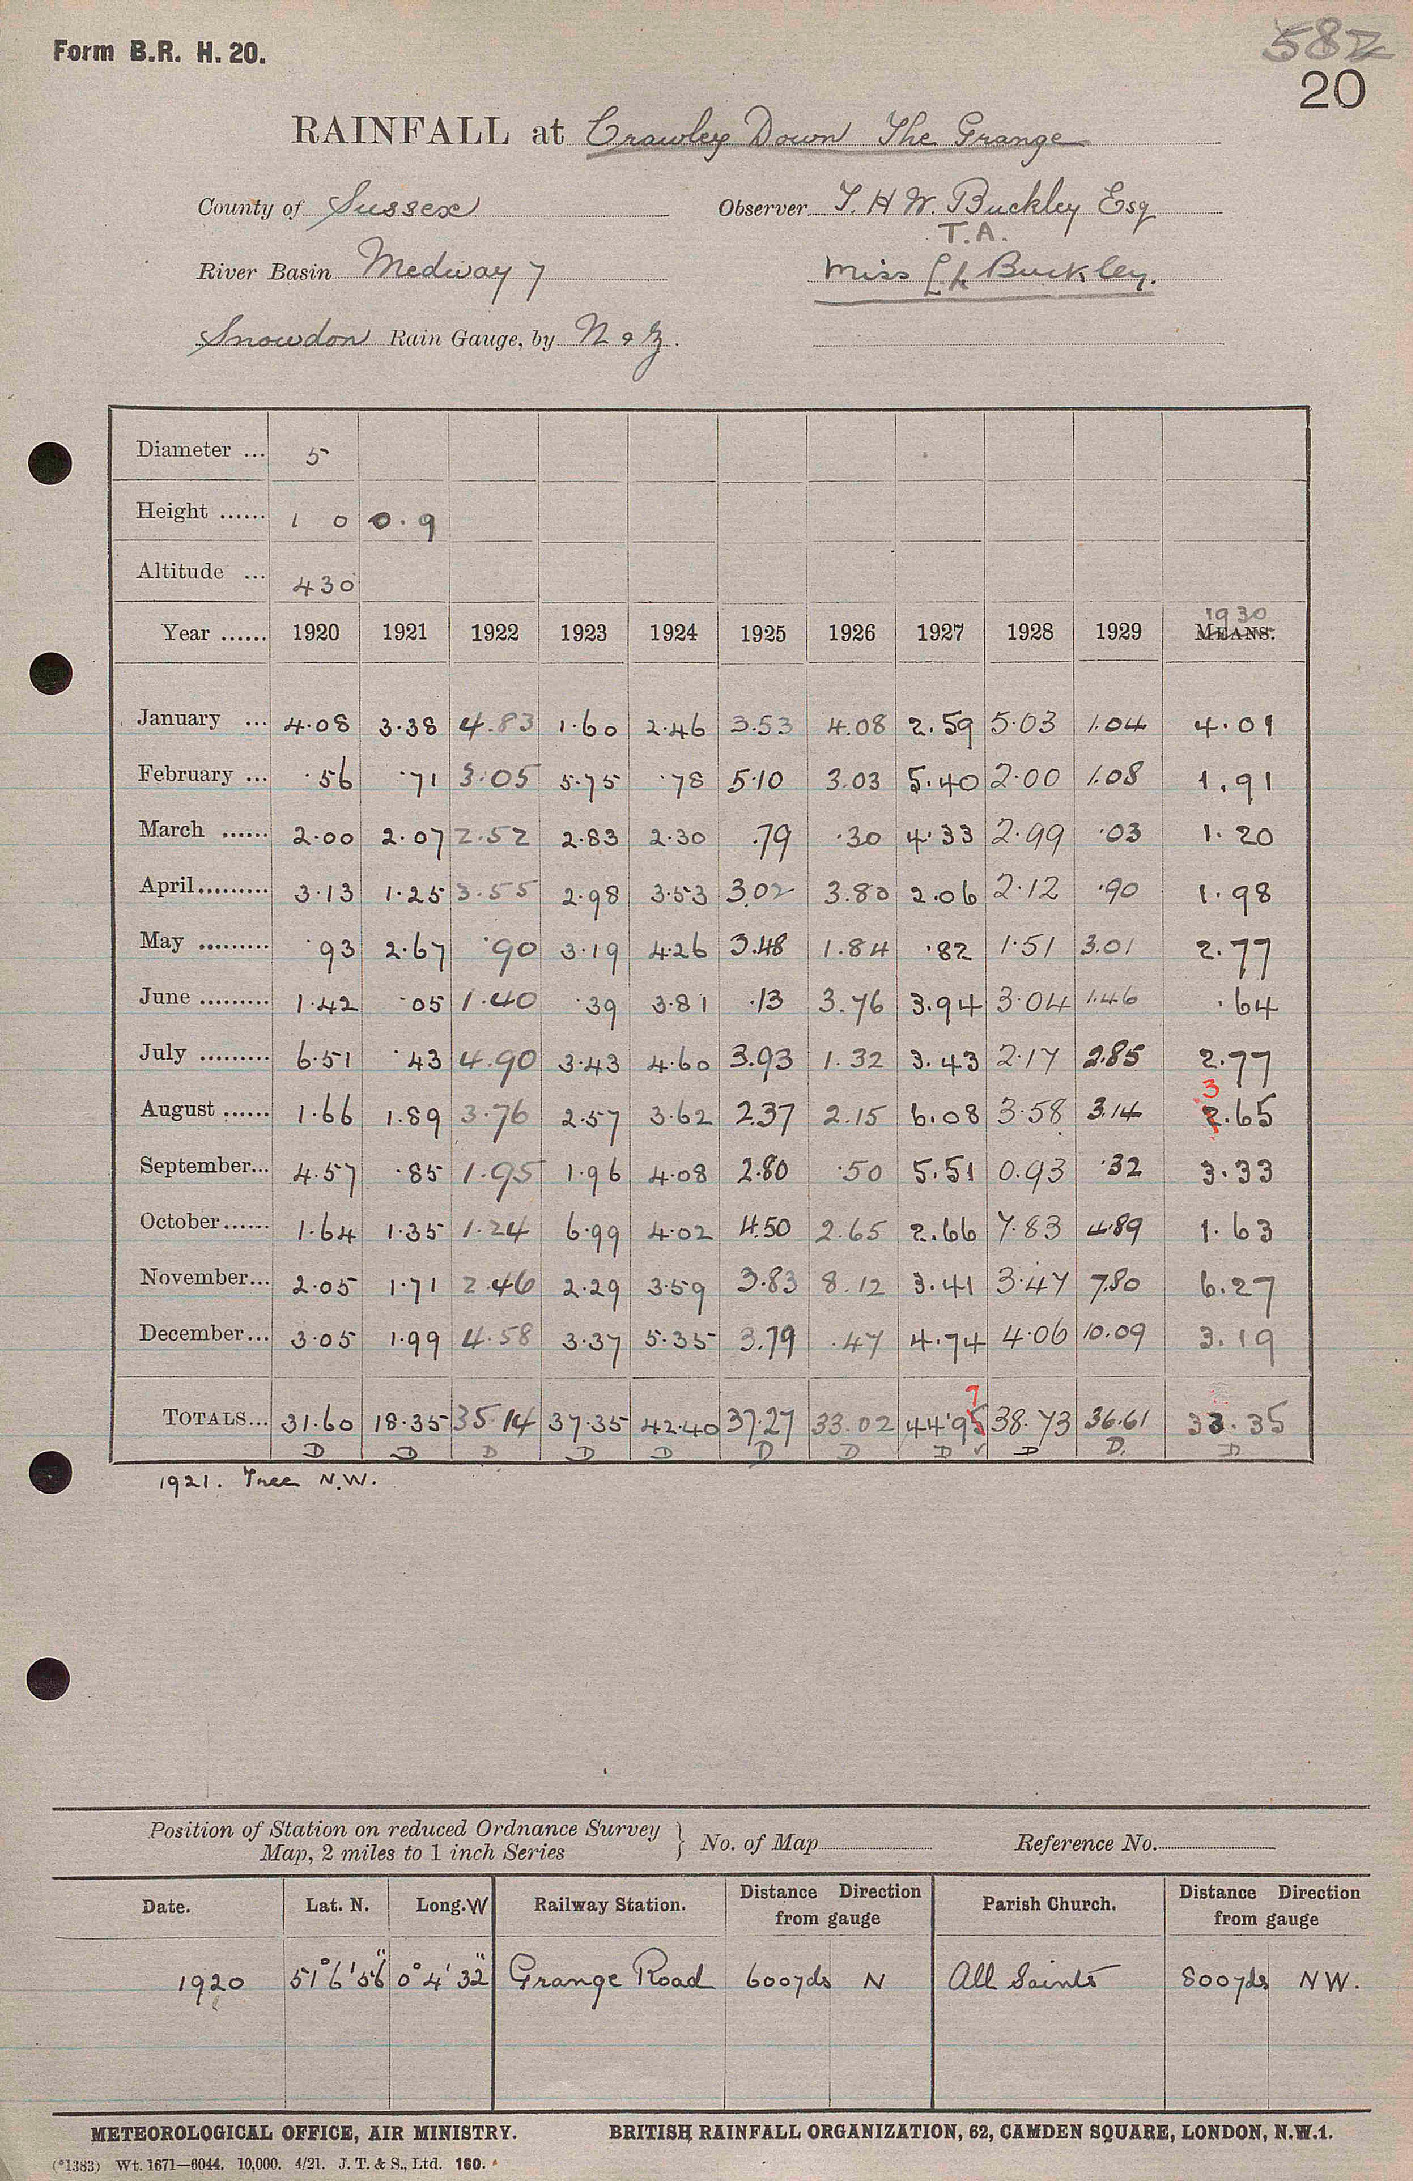 Form B.R. H. 20.
582
20
RAINFALL at Crawley Down The Grange
County of Sussex Observer T. H. W. Buckley Esq
T.A.
River Basin Medway 7 Miss Buckley.
Snowdon Rain Gauge, by N & Z.
Diameter ... 5
Height ...... 1 0 0.9
Altitude ... 430
1930
Year ...... 1920 1921 1922 1923 1924 1925 1926 1927 1928 1929 MEANS.
January ... 4.08 3.38 4.83 1.60 2.46 3.53 4.08 2.59 5.03 1.04 4.01
February ... .56 .71 3.05 5.75 .78 5.10 3.03 5.40 2.00 1.08 1.91
March ...... 2.00 2.07 2.52 2.83 2.30 .79 .30 4.33 2.99 .03 1.20
April......... 3.13 1.25 3.55 2.98 3.53 3.02 3.80 2.06 2.12 .90 1.98
May ......... .93 2.67 .90 3.19 4.26 3.48 1.84 .82 1.51 3.01 2.77
June ......... 1.42 .05 1.40 .39 3.81 .13 3.76 3.94 3.04 1.46 .64
July ......... 6.51 .43 4.90 3.43 4.60 3.93 1.32 3.43 2.17 2.85 2.77
3
August ...... 1.66 1.89 3.76 2.57 3.62 2.37 2.15 6.08 3.58 3.14 2.65
September... 4.57 .85 1.95 1.96 4.08 2.80 .50 5.51 0.93 .32 3.33
October...... 1.64 1.35 1.24 6.99 4.02 4.50 2.65 2.66 7.83 4.89 1.63
November... 2.05 1.71 2.46 2.29 3.59 3.83 8.12 3.41 3.47 7.80 6.27
December... 3.05 1.99 4.58 3.37 5.35 3.79 .47 4.74 4.06 10.09 3.19
7
TOTALS... 31.60 18.35 35.14 37.35 42.40 37.27 33.02 44.95 38.73 36.61 33.35
D D D D D D D D ✓ D D. D
1921. Tree N.W.
Position of Station on reduced Ordnance Survey
Map, 2 miles to 1 inch Series } No. of Map Reference No.
Date. Lat. N. Long. W Railway Station. Distance Direction from gauge Parish Church. Distance Direction from gauge
1920 51° 6' 56" 0° 4' 32" Grange Road 600 yds N All Saints 800 yds NW.
METEOROLOGICAL OFFICE, AIR MINISTRY. BRITISH RAINFALL ORGANIZATION, 62, CAMDEN SQUARE, LONDON, N.W.1.
(*1383) Wt. 1671—6044. 10,000. 4/21. J. T. & S., Ltd. 160.